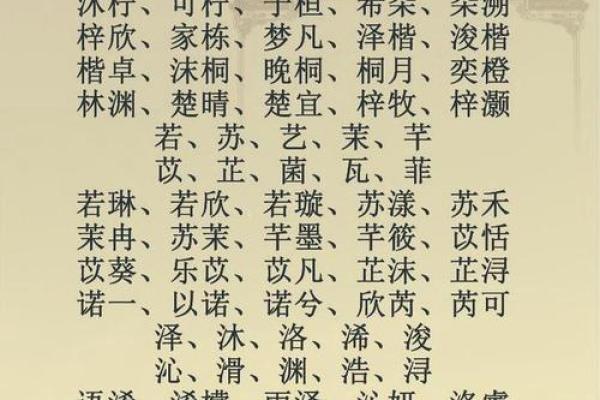 沐柠、可柠、子桓、希柒、柒溯
梓欣、家栋、梦凡、泽楷、浚楷
楷卓、沫桐、晚桐、桐月、奕橙
林渊、楚晴、楚宜、梓牧、梓灏
若、苏、艺、茉、芊
苡、芷、菌、瓦、菲
若琳、若欣、若璇、苏漾、苏禾
茉冉、苏茉、芊墨、芊筱、苡恬
苡葵、乐苡、苡凡、芷沫、芷浔
诺一、以诺、诺兮、欣芮、芮可
泽、沐、洛、浠、浚
沁、滑、渊、浩、浔
语浠、浠、雨泽、沁妍、洛睿